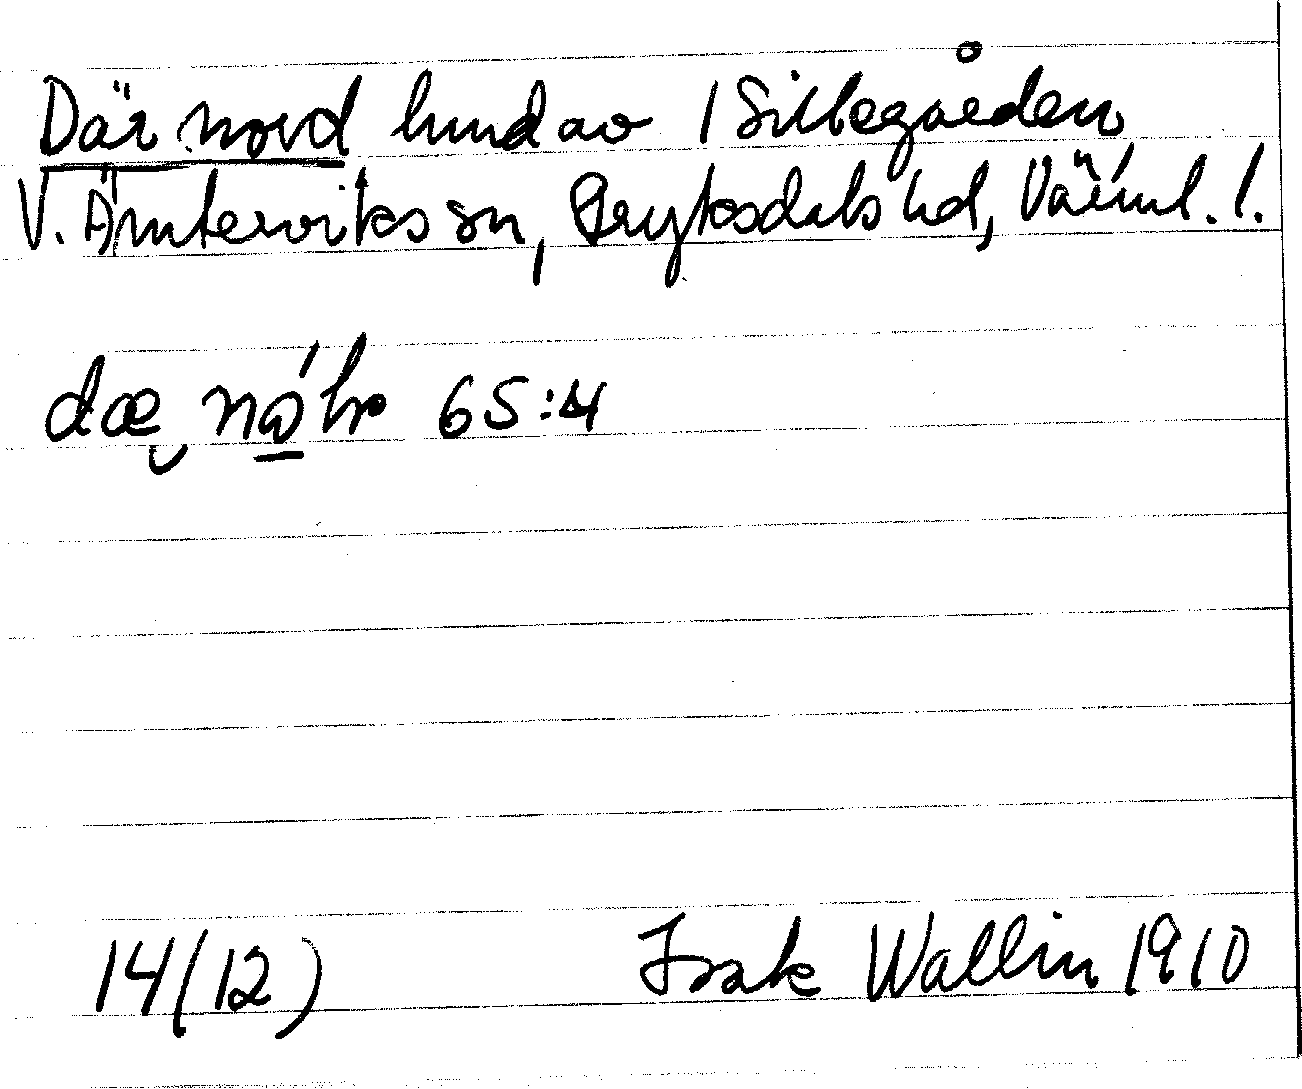 Där nord hmd av 1 Sillegården
V. Ämterviks sn, Fryksdals hd, Värml. l.
dæ nɷ́ꞎr 65:4
14(12) Isak Wallin 1910